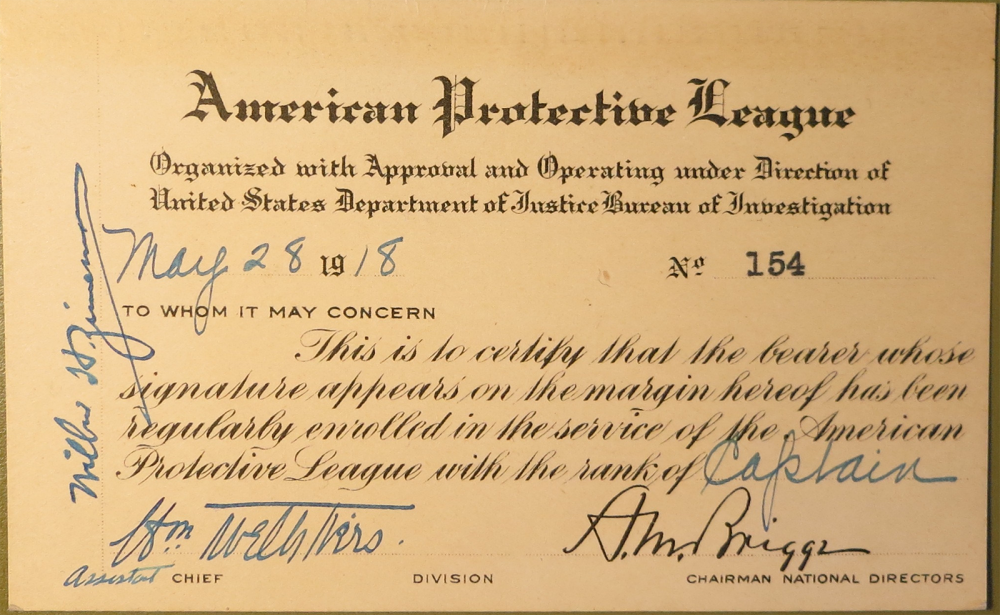 American Protective League
Organized with Approval and Operating under Direction of
United States Department of Justice Bureau of Investigation
May 28 1918 No 154
TO WHOM IT MAY CONCERN
This is to certify that the bearer whose
signature appears on the margin hereof has been
regularly enrolled in the service of the American
Protective League with the rank of Captain
Wm
A.M. Briggs
Assistant CHIEF DIVISION CHAIRMAN NATIONAL DIRECTORS